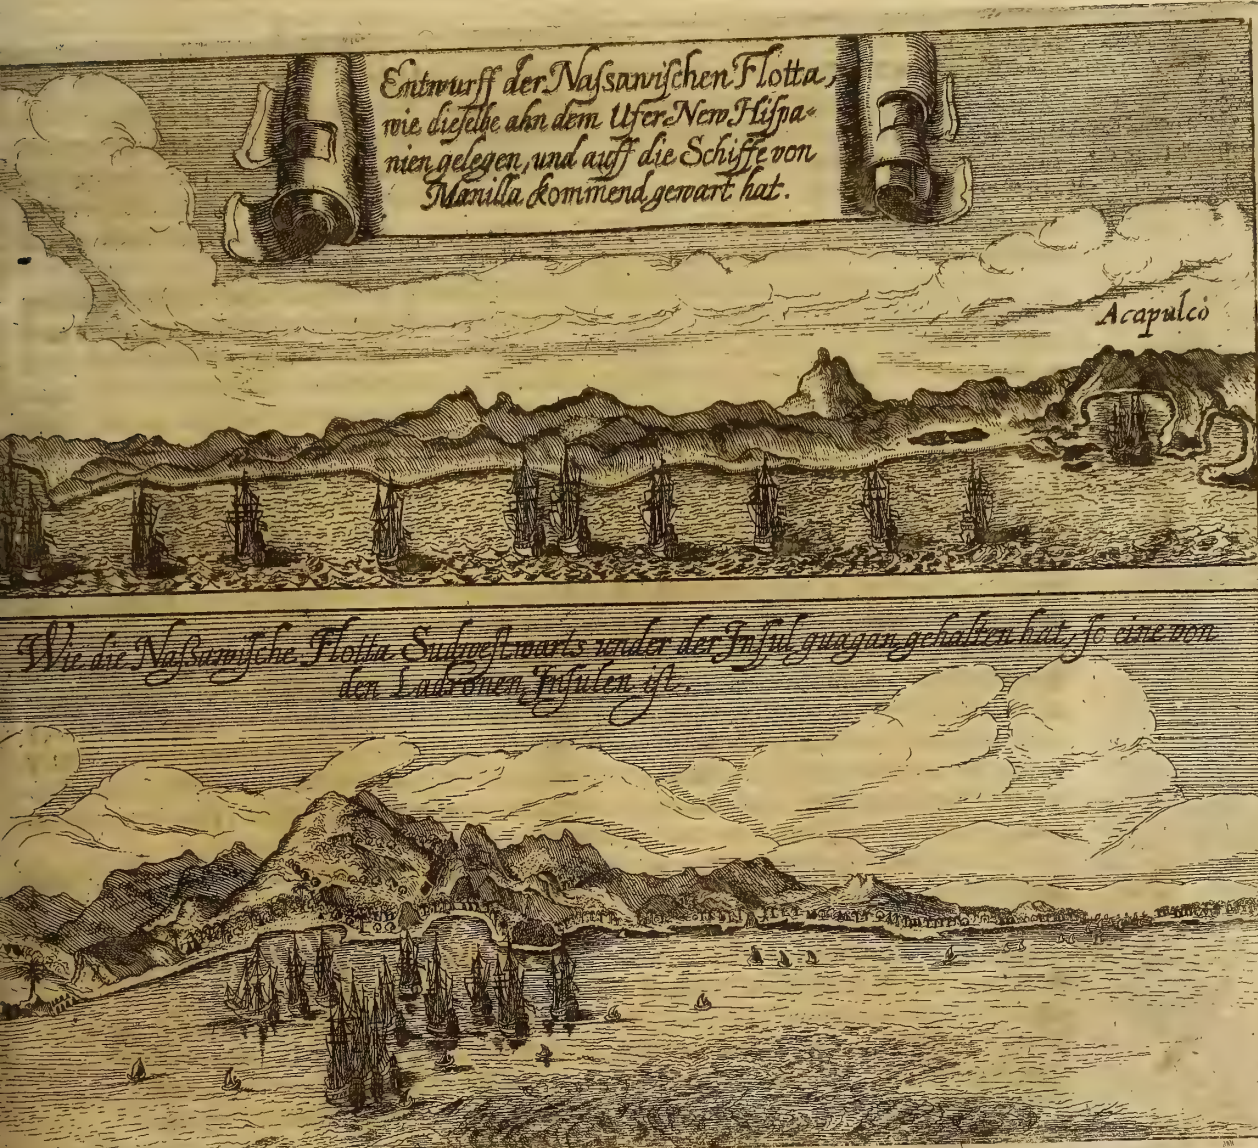 Entwurff der Naſsawiſchen Flotta,
wie dieſelbe ahn dem Ufer New Hiſpa-
nien gelegen, und auff die Schiffe von
Manilla kommend gewart hat.
Acapulco
Wie die Naßawiſche Flotta Sudweſtwarts under der Inſul guagan, gehalten hat, ſo eine von
den Ladronen, Inſulen iſt.